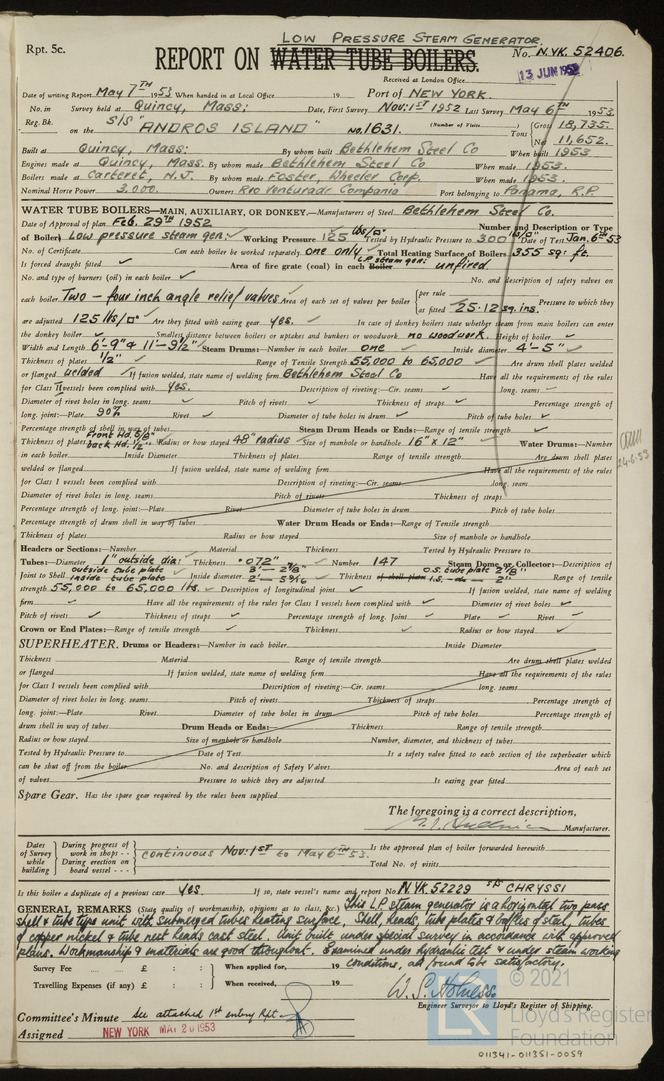 LOW PRESSURE STEAM GENERATOR.
Rpt. 5c.
REPORT ON WATER TUBE BOILERS. No. N.YK. 52406.
13 JUN 1953
Received at London Office
Date of writing Report May 7TH 1953 When handed in at Local Office 19 Port of NEW YORK.
No. in Reg. Bk. Survey held at Quincy, Mass: Date, First Survey Nov: 1ST 1952 Last Survey May 6TH 1953
on the S/S "ANDROS ISLAND" No. 1631. (Number of Visits) Tons {Gross 18,735. Net 11,652.
Built at Quincy, Mass: By whom built Bethlehem Steel Co When built 1953
Engines made at Quincy, Mass. By whom made Bethlehem Steel Co When made 1953.
Boilers made at Carteret, N.J. By whom made Foster, Wheeler Corp. When made 1953.
Nominal Horse Power 3,000. Owners Rio Venturado Compania Port belonging to Panama, R.P.
WATER TUBE BOILERS—MAIN, AUXILIARY, OR DONKEY.—Manufacturers of Steel Bethlehem Steel Co.
Date of Approval of plan Feb. 29TH 1952 Number and Description or Type
of Boiler Low pressure steam gen: Working Pressure 125 lbs/□" Tested by Hydraulic Pressure to 300 lb/□" Date of Test Jan. 6TH 53
No. of Certificate Can each boiler be worked separately one only Total Heating Surface of Boilers 355 sq: ft.
Is forced draught fitted Area of fire grate (coal) in each Boiler L.P steam gen: unfired.
No. and type of burners (oil) in each boiler No. and description of safety valves on
each boiler Two - four inch angle relief valves Area of each set of valves per boiler {per rule as fitted 25.12 sq. ins. Pressure to which they
are adjusted 125 lbs/□" Are they fitted with easing gear yes. In case of donkey boilers state whether steam from main boilers can enter
the donkey boiler Smallest distance between boilers or uptakes and bunkers or woodwork no woodwork. Height of boiler
Width and Length 6'-9" & 11'-9½" Steam Drums:—Number in each boiler one Inside diameter 4'-5"
Thickness of plates ½" Range of Tensile Strength 55,000 to 65,000 Are drum shell plates welded
or flanged welded If fusion welded, state name of welding firm Bethlehem Steel Co Have all the requirements of the rules
for Class II vessels been complied with Yes. Description of riveting:—Cir. seams long. seams
Diameter of rivet holes in long. seams Pitch of rivets Thickness of straps Percentage strength of
long. joint:—Plate 90% Rivet Diameter of tube holes in drum Pitch of tube holes
Percentage strength of shell in way of tubes Steam Drum Heads or Ends:—Range of tensile strength
Thickness of plates Front Hd. 5/8" back Hd. ½" Radius or how stayed 48" radius Size of manhole or handhole 16" x 12" Water Drums:—Number
in each boiler Inside Diameter Thickness of plates Range of tensile strength Are drum shell plates
welded or flanged If fusion welded, state name of welding firm Have all the requirements of the rules
for Class I vessels been complied with Description of riveting:—Cir. seams long. seams
Diameter of rivet holes in long. seams Pitch of rivets Thickness of straps
Percentage strength of long. joint:—Plate Rivet Diameter of tube holes in drum Pitch of tube holes
Percentage strength of drum shell in way of tubes Water Drum Heads or Ends:—Range of Tensile strength
Thickness of plates Radius or how stayed Size of manhole or handhole
Headers or Sections:—Number Material Thickness Tested by Hydraulic Pressure to
Tubes:—Diameter 1" outside dia: Thickness .072" Number 147 Steam Dome or Collector:—Description of
Joint to Shell outside tube plate inside tube plate Inside diameter 3'-2⅞" 2'-5 9/16 Thickness of shell plate O.S. tube plate 2⅞" I.S. -do- 2" Range of tensile
strength 55,000 to 65,000 lbs. Description of longitudinal joint If fusion welded, state name of welding
firm Have all the requirements of the rules for Class I vessels been complied with Diameter of rivet holes
Pitch of rivets Thickness of straps Percentage strength of long. Joint Plate Rivet
Crown or End Plates:—Range of tensile strength Thickness Radius or how stayed
SUPERHEATER. Drums or Headers:—Number in each boiler Inside Diameter
Thickness Material Range of tensile strength Are drum shell plates welded
or flanged If fusion welded, state name of welding firm Have all the requirements of the rules
for Class I vessels been complied with Description of riveting:—Cir. seams long. seams
Diameter of rivet holes in long. seams Pitch of rivets Thickness of straps Percentage strength of
long. joint:—Plate Rivet Diameter of tube holes in drum Pitch of tube holes Percentage strength of
drum shell in way of tubes Drum Heads or Ends:— Thickness Range of tensile strength
Radius or how stayed Size of manhole or handhole Number, diameter, and thickness of tubes
Tested by Hydraulic Pressure to Date of Test Is a safety valve fitted to each section of the superheater which
can be shut off from the boiler No. and description of Safety Valves Area of each set
of valves Pressure to which they are adjusted Is easing gear fitted
Spare Gear. Has the spare gear required by the rules been supplied
The foregoing is a correct description,
Manufacturer.
Dates of Survey while building {During progress of work in shops - - During erection on board vessel - - - continuous Nov: 1ST to May 6TH 53. Is the approved plan of boiler forwarded herewith
Total No. of visits
Is this boiler a duplicate of a previous case Yes If so, state vessel's name and report No. N.YK 52229 S/S CHRYSSI
GENERAL REMARKS (State quality of workmanship, opinions as to class, &c.) This L.P steam generator is a horizontal two pass
shell & tube type unit with submerged tubes heating surface. Shell, heads, tube plates & baffles of steel, tubes
of copper nickel & tube nest heads cast steel. Unit built under special survey in accordance with approved
plans. Workmanship & materials are good throughout. Examined under hydraulic test & under steam working
conditions, all found to be satisfactory.
Survey Fee ... ... £ : : When applied for, 19
Travelling Expenses (if any) £ : : When received, 19
Engineer Surveyor to Lloyd's Register of Shipping.
Committee's Minute See attached 1st entry Rpt.
Assigned NEW YORK MAY 20 1953
24.6.53
© 2021
Lloyd's Register
Foundation
011341-011351-0059